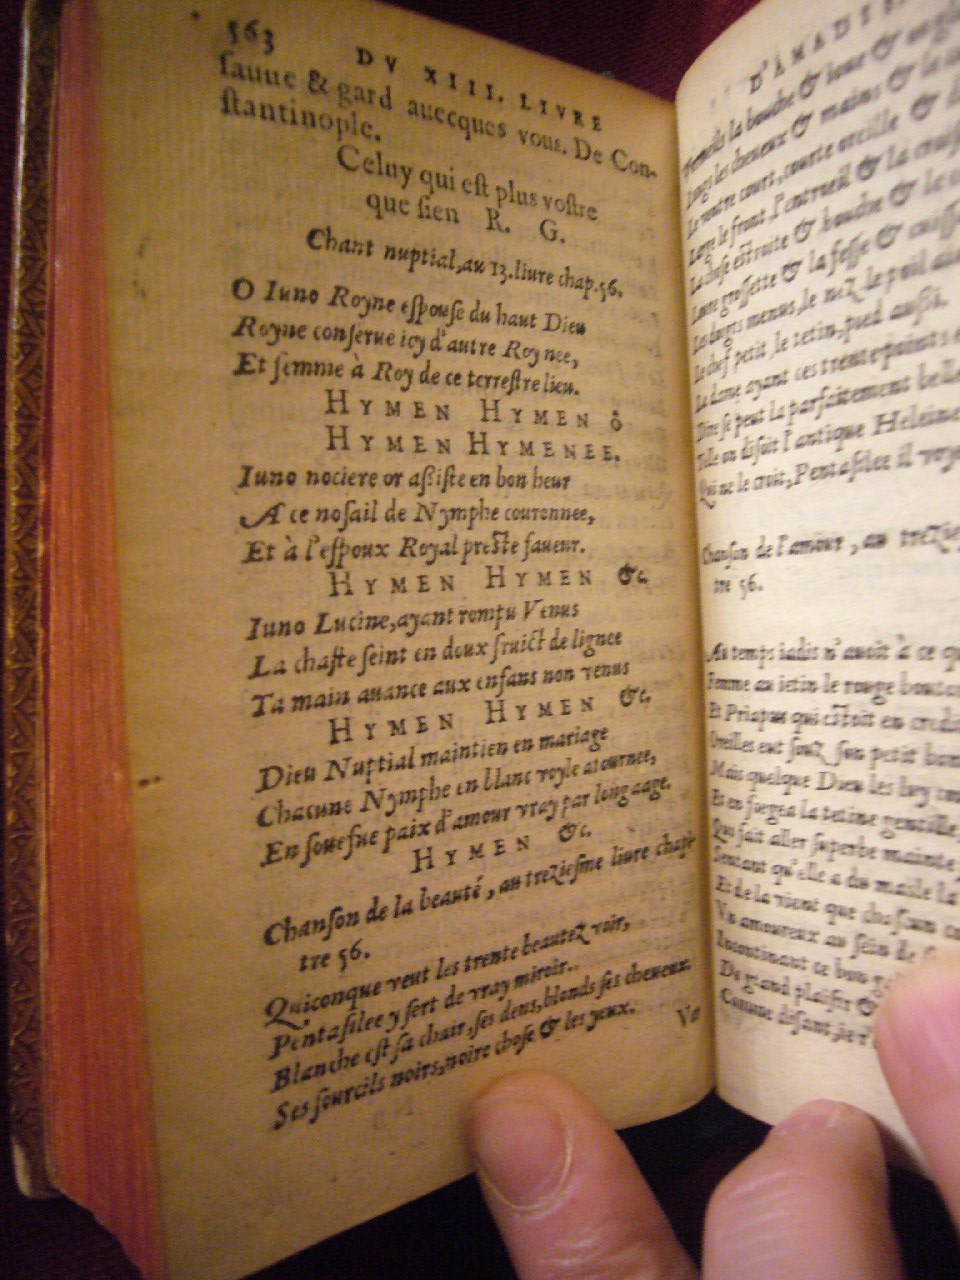 563
DV XIII. LIVRE
ſauue & gard auecques vous. De Con-
ſtantinople.
Celuy qui eſt plus voſtre
que ſien R. G.
Chant nuptial, au 13. liure chap. 56.
O Iuno Royne eſpouſe du haut Dieu
Royne conſerue icy d'autre Roynee,
Et femme à Roy de ce terreſtre lieu.
HYMEN HYMEN ô
HYMEN HYMENEE.
Iuno nociere or aſsiſte en bon heur
A ce noſail de Nymphe couronnee,
Et à l'eſpoux Royal preſte faueur.
HYMEN HYMEN &c.
Iuno Lucine, ayant rompu Venus
La chaſte ſeint en doux fruict de lignee
Ta main auance aux enfans non venus
HYMEN HYMEN &c.
Dieu Nuptial maintien en mariage
Chacune Nymphe en blanc voyle atournee,
En ſouefue paix d'amour vray par long aage.
HYMEN &c.
Chanſon de la beauté, au trezieſme liure chapi-
tre 56.
Quiconque veut les trente beautez voir,
Pentaſilee y ſert de vray miroir.
Blanche eſt ſa chair, ſes dens, blonds ſes cheueux
Ses ſourcils noirs, noire choſe & les yeux.
D'AMADIS
la bouche & ioue &
Longs les cheueux & mains & la
Le ventre court, courte oreille &
Large le front l'entrueil & la
La choſe eſtroite & bouche & la
groſſette & la feſſe &
Les doigts menus, le nez, le poil
Le chef petit, le tetin, pied auſsi.
La dame ayant ces trente points
Dire ſe peut la parfaitement belle
Telle on diſoit l'antique Heleine
Qui ne le croit, Pentaſilee il
Chanſon de l'amour, au
tre 56.
Au temps iadis n'auoit à ce
Femme au tetin le rouge
Et Priapus qui eſtoit en
Oreilles eut ſouz ſon petit
Mais quelque Dieu les luy
Et en forgea la tetine gentille
Qui fait aller ſuperbe mainte
Sentant qu'elle a du maſle la
Et de la vient que chaſcun
Vn amoureux au ſein de
Incontinant ce bon
Du grand plaiſir &
Comme diſant, ie